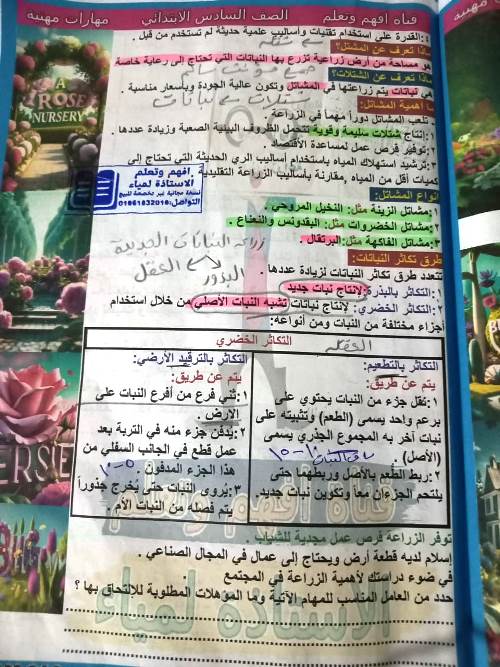 قناة افهم وتعلم الصف السادس الابتدائي مهارات مهنية
٤:القدرة على استخدام تقنيات وأساليب علمية حديثة لم تستخدم من قبل .
ماذا تعرف عن المشتل؟
هو مساحة من أرض زراعية تزرع بها النباتات التي تحتاج إلى رعاية خاصة
ماذا تعرف عن الشتلات؟
هي نباتات يتم زراعتها في المشاتل وتكون عالية الجودة وبأسعار مناسبة .
ما أهمية المشاتل:
تلعب المشاتل دوراً مهماً في الزراعة .
١:إنتاج شتلات سليمة وقوية تتحمل الظروف البيئية الصعبة وزيادة عددها .
٢:توفير فرص عمل لمساعدة الأقتصاد .
٣:ترشيد استهلاك المياه باستخدام أساليب الري الحديثة التي تحتاج إلى
كميات أقل من المياه ,مقارنة بأساليب الزراعة التقليدية .
افهم وتعلم
الاستاذة لمياء
نسخة مجانية غير مخصصة للبيع
أنواع المشاتل:
١:مشاتل الزينة مثل: النخيل المروحي .
٢:مشاتل الخضروات مثل: البقدونس والنعناع .
٣:مشاتل الفاكهة مثل: البرتقال .
زراعة النباتات الجديدة
البذور
العقل
طرق تكاثر النباتات:
تتعدد طرق تكاثر النباتات لزيادة عددها .
١:التكاثر بالبذرة: لإنتاج نبات جديد
٢:التكاثر الخضري: لإنتاج نباتات تشبه النبات الأصلي من خلال استخدام
أجزاء مختلفة من النبات ومن أنواعه:
التكاثر الخضري
التكاثر بالتطعيم:
يتم عن طريق:
١:نقل جزء من النبات يحتوي على
برعم واحد يسمى (الطعم) وتثبيته على
نبات آخر به المجموع الجذري يسمى
(الأصل) .
٢:ربط الطعم بالأصل وربطهما حتى
يلتحم الجزءان معاً وتكوين نبات جديد.
التكاثر بالترقيد الأرضي:
يتم عن طريق:
١:ثني فرع من أفرع النبات على
الارض .
٢:يدفن جزء منه في التربة بعد
عمل قطع في الجانب السفلي من
هذا الجزء المدفون .
٣:يروى النبات حتى يُخرج جذوراً
يتم فصله من النبات الأم .
توفر الزراعة فرص عمل مجدية للشباب .
إسلام لديه قطعة أرض ويحتاج إلى عمال في المجال الصناعي .
في ضوء دراستك لأهمية الزراعة في المجتمع
حدد من العامل المناسب للمهام الآتية وما المؤهلات المطلوبة للالتحاق بها ؟
قناة افهم وتعلم
الاستاذة لمياء
A
ROSE
NURSERY